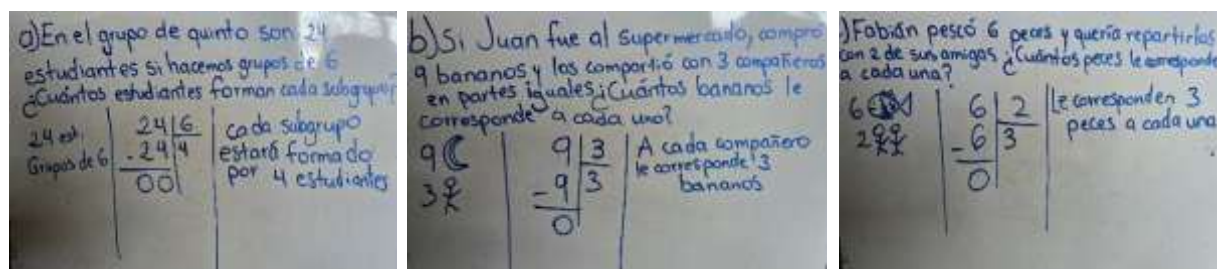 a) En el grupo de quinto son 24
estudiantes si hacemos grupos de 6
¿Cuántos estudiantes forman cada subgrupo?
24 est.
Grupos de 6
24 6
- 24 4
00
cada subgrupo
estará formado
por 4 estudiantes
b) Si Juan fue al supermercado, compro
9 bananos y los compartió con 3 compañeros
en partes iguales ¿Cuántos bananos le
corresponde a cada uno?
9
3
9 3
- 9 3
0
A cada compañero
le corresponde 3
bananos
) Fabián pescó 6 peces y quería repartirlos
con 2 de sus amigas ¿Cuántos peces le corresponde
a cada una?
6
2
6 2
- 6 3
0
le corresponden 3
peces a cada una